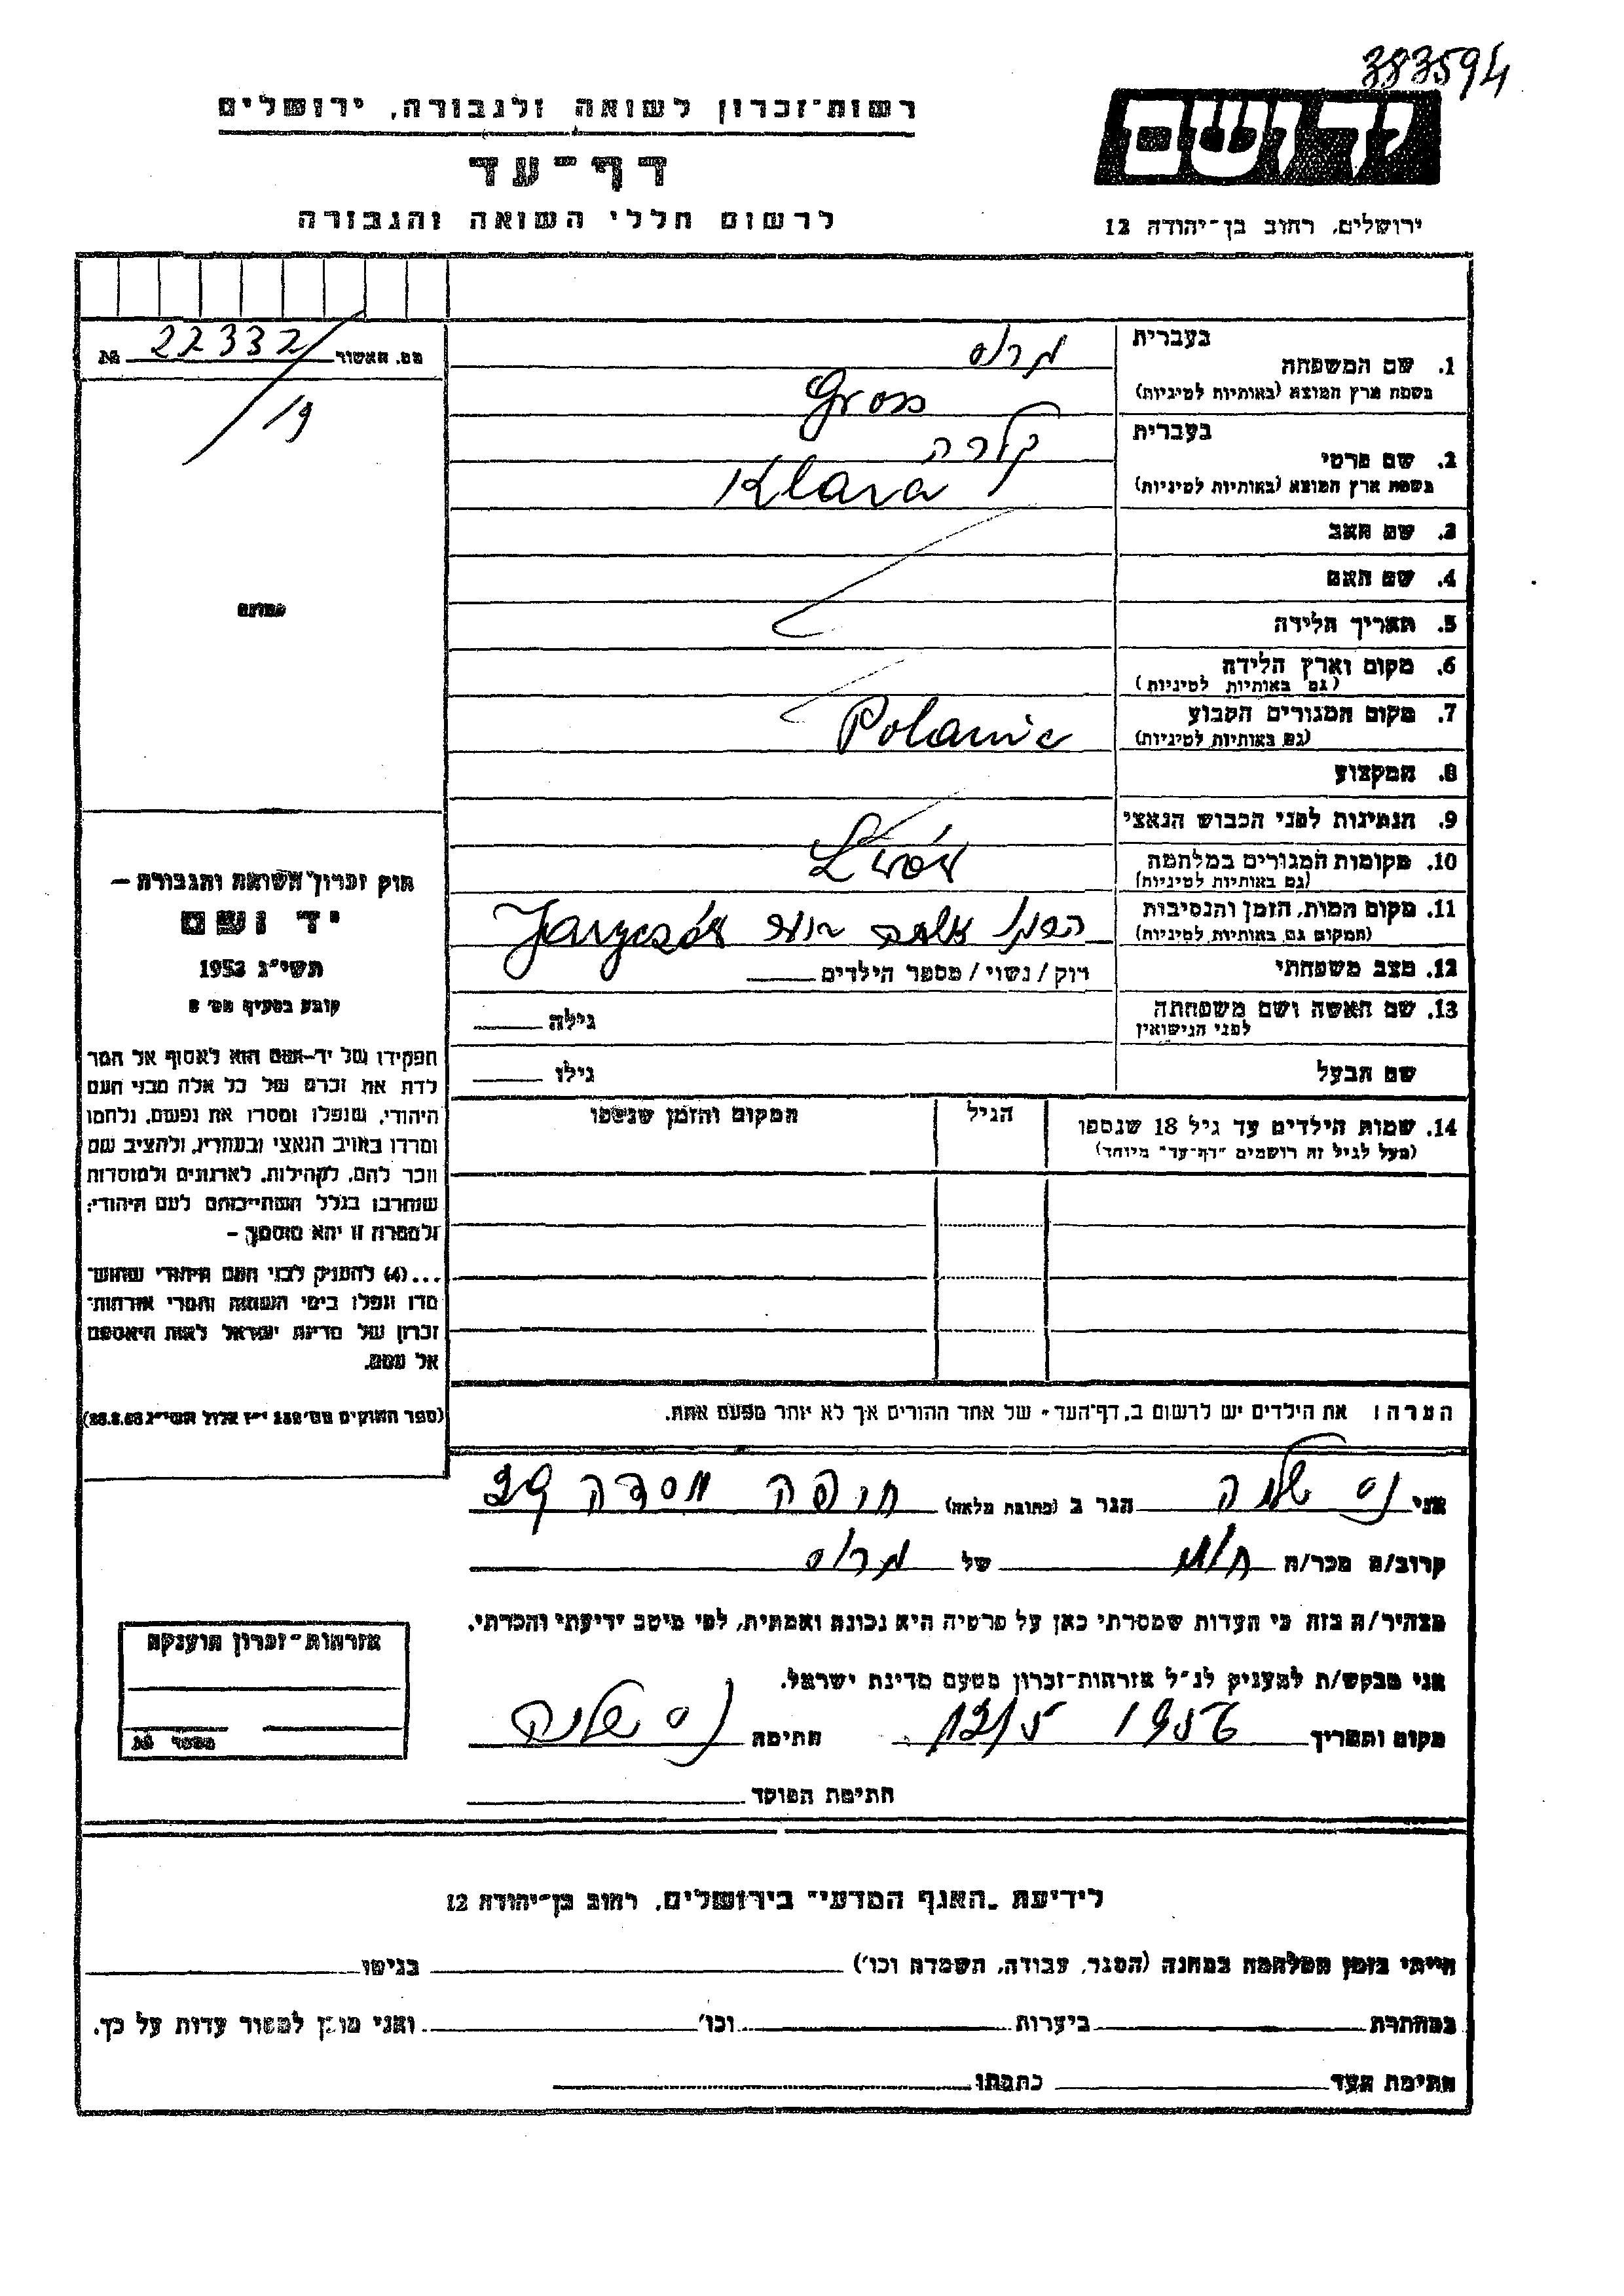 383594
יד ושם
רשות־זכרון לשואה ולגבורה, ירושלים
דף־עד
לרשום חללי השואה והגבורה
ירושלים, רחוב בן־יהודה 12
מס. האשור 22332 №
/19
תמונה
חוק זכרון השואה והגבורה —
יד ושם
תשי״ג 1953
קובע בסעיף מס׳ 2
תפקידו של יד-ושם הוא לאסוף אל תוך
לדת את זכרם של כל אלה מבני העם
היהודי, שנפלו ומסרו את נפשם, נלחמו
ומרדו באויב הנאצי ובעוזריו, ולהציב שם
וזכר להם, לקהילות, לארגונים ולמוסדות
שנחרבו בגלל השתייכותם לעם היהודי;
ולמטרה זו יהא מוסמך —
...(4) להעניק לבני העם היהודי שהוש־
מדו ונפלו בימי השואה והמרי אזרחות־
זכרון של מדינת ישראל לאות היאספם
אל עמם.
(ספר החוקים מס׳ 132 י״ז אלול תשי״ג 28.8.53)
בעברית
1. שם המשפחה גרוס
בשפת ארץ המוצא (באותיות לטיניות) Gross
בעברית
2. שם פרטי קלרה
בשפת ארץ המוצא (באותיות לטיניות) Klara
3. שם האב
4. שם האם
5. תאריך הלידה
6. מקום וארץ הלידה
(גם באותיות לטיניות)
7. מקום המגורים הקבוע
(גם באותיות לטיניות)
8. המקצוע
9. הנתינות לפני הכבוש הנאצי
10. מקומות המגורים במלחמה Lwów
(גם באותיות לטיניות)
11. מקום המות, הזמן והנסיבות
(המקום גם באותיות לטיניות)
12. מצב משפחתי רוק / נשוי / מספר הילדים
13. שם האשה ושם משפחתה גילה
לפני הנישואין
שם הבעל גילו
14. שמות הילדים עד גיל 18 שנספו הגיל המקום והזמן שנספו
(מעל לגיל זה רושמים "דף־עד" מיוחד)
הערה: את הילדים יש לרשום ב„דף־העד״ של אחד ההורים אך לא יותר מפעם אחת.
אני נס שלמה הגר ב (כתובת מלאה) חיפה מסדה 29
קרוב/ה מכר/ה של גרוס
מצהיר/ה בזה כי העדות שמסרתי כאן על פרטיה היא נכונה ואמתית, לפי מיטב ידיעתי והכרתי.
אני מבקש/ת להעניק לנ״ל אזרחות־זכרון מטעם מדינת ישראל.
מקום ותאריך 12/5 1956 חתימה נס שלמה
חתימת הפוקד
אזרחות־זכרון הוענקה
מספר №
לידיעת „האגף המדעי״ בירושלים, רחוב בן־יהודה 12
הייתי בזמן המלחמה במחנה (הסגר, עבודה, השמדה וכו׳) בגיטו
במחתרת ביערות וכו׳ ואני מוכן למסור עדות על כך.
חתימת העד כתבתו